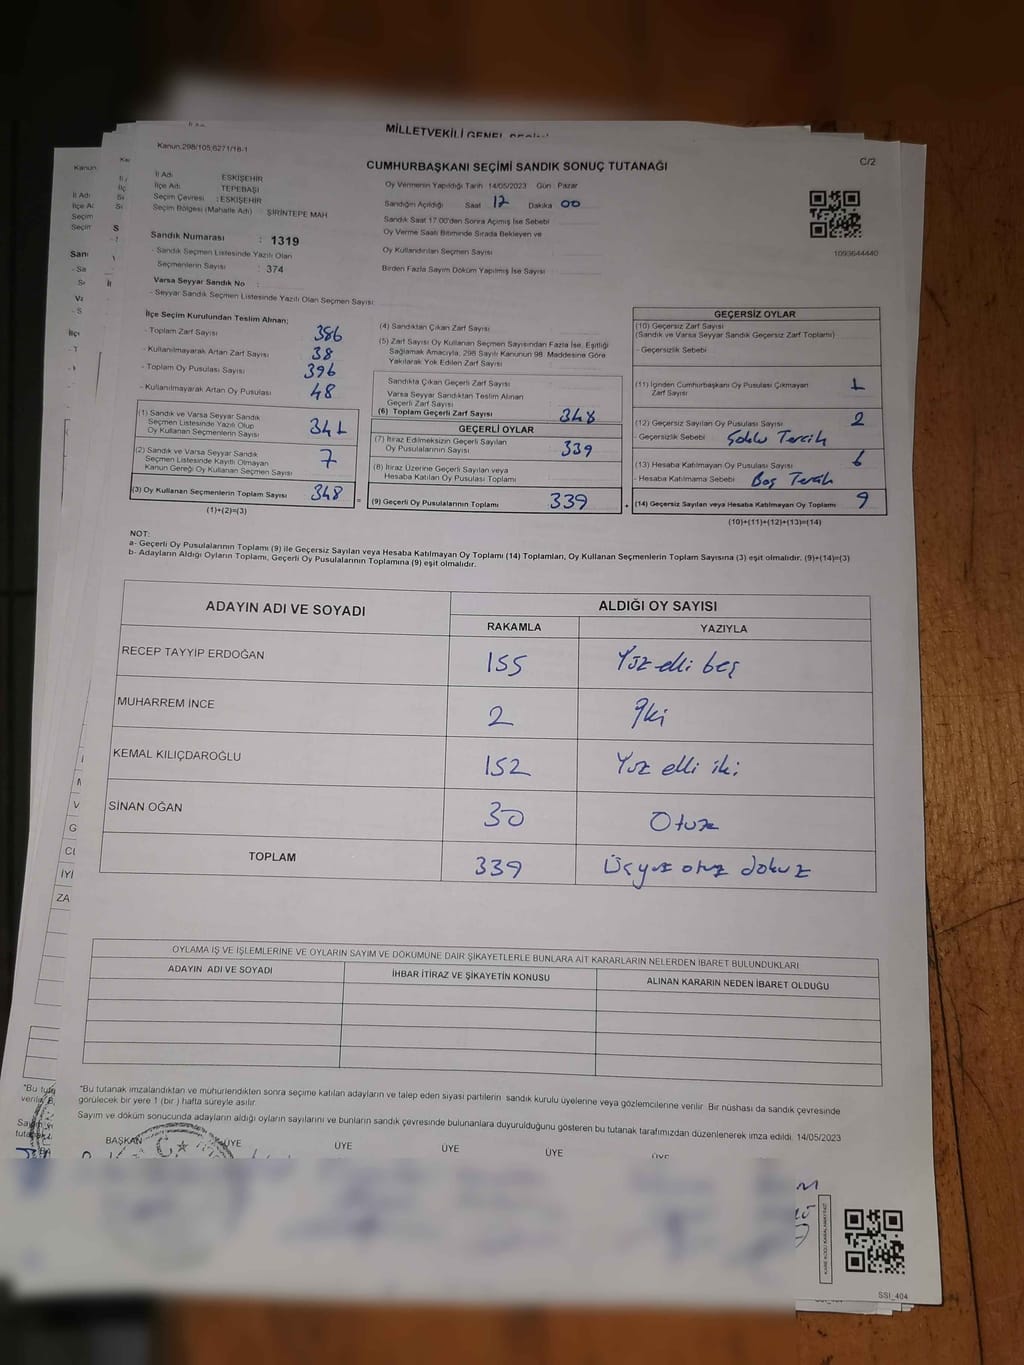 MİLLETVEKİLİ GENEL
Kanun.298/105;6271/18-1
CUMHURBAŞKANI SEÇİMİ SANDIK SONUÇ TUTANAĞI
C/2
İl Adı : ESKİŞEHİR
İlçe Adı : TEPEBAŞI
Seçim Çevresi : ESKİŞEHİR
Seçim Bölgesi (Mahalle Adı) : ŞİRİNTEPE MAH
Sandık Numarası : 1319
- Sandık Seçmen Listesinde Yazılı Olan
Seçmenlerin Sayısı : 374
Varsa Seyyar Sandık No :
- Seyyar Sandık Seçmen Listesinde Yazılı Olan Seçmen Sayısı:
Oy Vermenin Yapıldığı Tarih 14/05/2023 Gün Pazar
Sandığın Açıldığı Saat 17 Dakika 00
Sandık Saat 17:00'den Sonra Açılmış İse Sebebi
Oy Verme Saati Bitiminde Sırada Bekleyen ve
Oy Kullandırılan Seçmen Sayısı
Birden Fazla Sayım Döküm Yapılmış İse Sayısı
1093644440
İlçe Seçim Kurulundan Teslim Alınan;
- Toplam Zarf Sayısı 386
- Kullanılmayarak Artan Zarf Sayısı 38
- Toplam Oy Pusulası Sayısı 396
- Kullanılmayarak Artan Oy Pusulası 48
(1) Sandık ve Varsa Seyyar Sandık
Seçmen Listesinde Yazılı Olup
Oy Kullanan Seçmenlerin Sayısı 341
(2) Sandık ve Varsa Seyyar Sandık
Seçmen Listesinde Kayıtlı Olmayan
Kanun Gereği Oy Kullanan Seçmen Sayısı 7
(3) Oy Kullanan Seçmenlerin Toplam Sayısı 348
(1)+(2)=(3)
(4) Sandıktan Çıkan Zarf Sayısı
(5) Zarf Sayısı Oy Kullanan Seçmen Sayısından Fazla İse, Eşitliği
Sağlamak Amacıyla, 298 Sayılı Kanunun 98. Maddesine Göre
Yakılarak Yok Edilen Zarf Sayısı
Sandıkta Çıkan Geçerli Zarf Sayısı
Varsa Seyyar Sandıktan Teslim Alınan
Geçerli Zarf Sayısı
(6) Toplam Geçerli Zarf Sayısı 348
GEÇERLİ OYLAR
(7) İtiraz Edilmeksizin Geçerli Sayılan
Oy Pusulalarının Sayısı 339
(8) İtiraz Üzerine Geçerli Sayılan veya
Hesaba Katılan Oy Pusulası Toplamı
= (9) Geçerli Oy Pusulalarının Toplamı 339
GEÇERSİZ OYLAR
(10) Geçersiz Zarf Sayısı
(Sandık ve Varsa Seyyar Sandık Geçersiz Zarf Toplamı)
- Geçersizlik Sebebi
(11) İçinden Cumhurbaşkanı Oy Pusulası Çıkmayan
Zarf Sayısı 1
(12) Geçersiz Sayılan Oy Pusulası Sayısı 2
- Geçersizlik Sebebi Çoklu Tercih
(13) Hesaba Katılmayan Oy Pusulası Sayısı 6
- Hesaba Katılmama Sebebi Boş Tercih
+ (14) Geçersiz Sayılan veya Hesaba Katılmayan Oy Toplamı 9
(10)+(11)+(12)+(13)=(14)
NOT:
a- Geçerli Oy Pusulalarının Toplamı (9) ile Geçersiz Sayılan veya Hesaba Katılmayan Oy Toplamı (14) Toplamları, Oy Kullanan Seçmenlerin Toplam Sayısına (3) eşit olmalıdır. (9)+(14)=(3)
b- Adayların Aldığı Oyların Toplamı, Geçerli Oy Pusulalarının Toplamına (9) eşit olmalıdır.
ADAYIN ADI VE SOYADI ALDIĞI OY SAYISI
RAKAMLA YAZIYLA
RECEP TAYYİP ERDOĞAN 155 Yüz elli beş
MUHARREM İNCE 2 İki
KEMAL KILIÇDAROĞLU 152 Yüz elli iki
SİNAN OĞAN 30 Otuz
TOPLAM 339 Üçyüz otuz dokuz
OYLAMA İŞ VE İŞLEMLERİNE VE OYLARIN SAYIM VE DÖKÜMÜNE DAİR ŞİKAYETLERLE BUNLARA AİT KARARLARIN NELERDEN İBARET BULUNDUKLARI
ADAYIN ADI VE SOYADI İHBAR İTİRAZ VE ŞİKAYETİN KONUSU ALINAN KARARIN NEDEN İBARET OLDUĞU
"Bu tutanak imzalandıktan ve mühürlendikten sonra seçime katılan adayların ve talep eden siyasi partilerin sandık kurulu üyelerine veya gözlemcilerine verilir. Bir nüshası da sandık çevresinde
görülecek bir yere 1 (bir ) hafta süreyle asılır.
Sayım ve döküm sonucunda adayların aldığı oyların sayılarını ve bunların sandık çevresinde bulunanlara duyurulduğunu gösteren bu tutanak tarafımızdan düzenlenerek imza edildi. 14/05/2023
BAŞKAN ÜYE ÜYE ÜYE ÜYE ÜYE
SSI_404